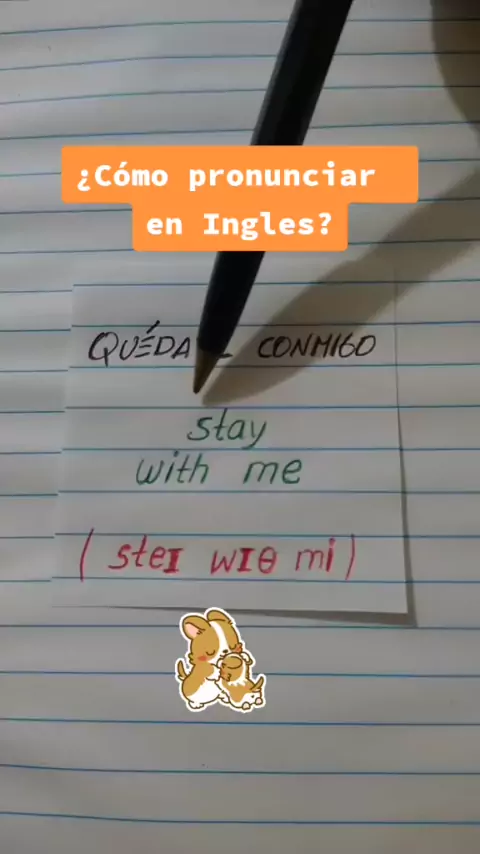 ¿Cómo pronunciar
en Ingles?
CONMIGO
stay
with me
(steɪ wɪθ mi)